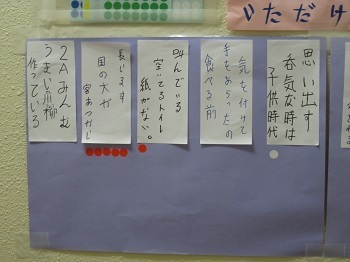 いただけ
思い出す
呑気な時は
子供時代
気を付けて
手をあらったの
食べる前
叫んでいる
空いてるトイレ
紙がない。
長します
国の大が
2Aみんな
うまい川柳
作っている